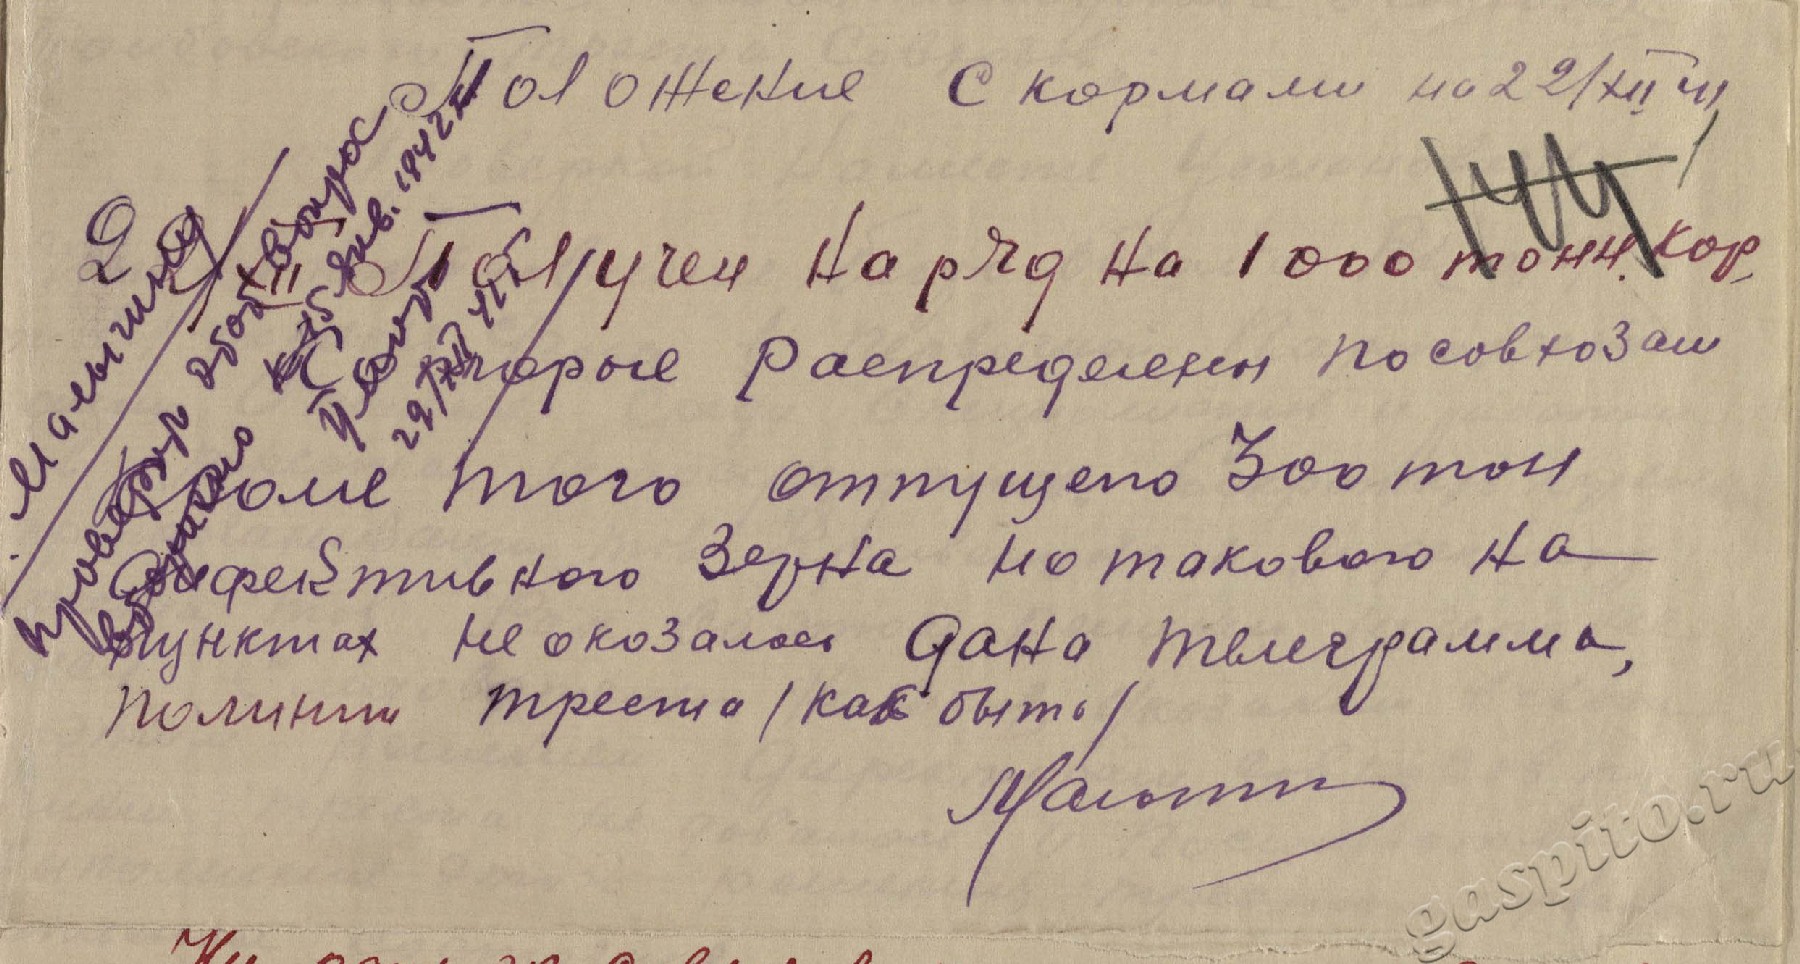 Положение с кормами на 22/XII 41
144
22/XII Получен наряд на 1000 тонн кор.
Которые распределены по совхозам
Кроме того отпущено 300 тон
дифективного зерна но такового на
пунктах не оказалось дана телеграмма,
полинии треста /как быть/
Малыгин
Малыгину
проверку этот вопрос
к 15 янв. 1942 г.
29/XII 41 г.
gaspito.ru